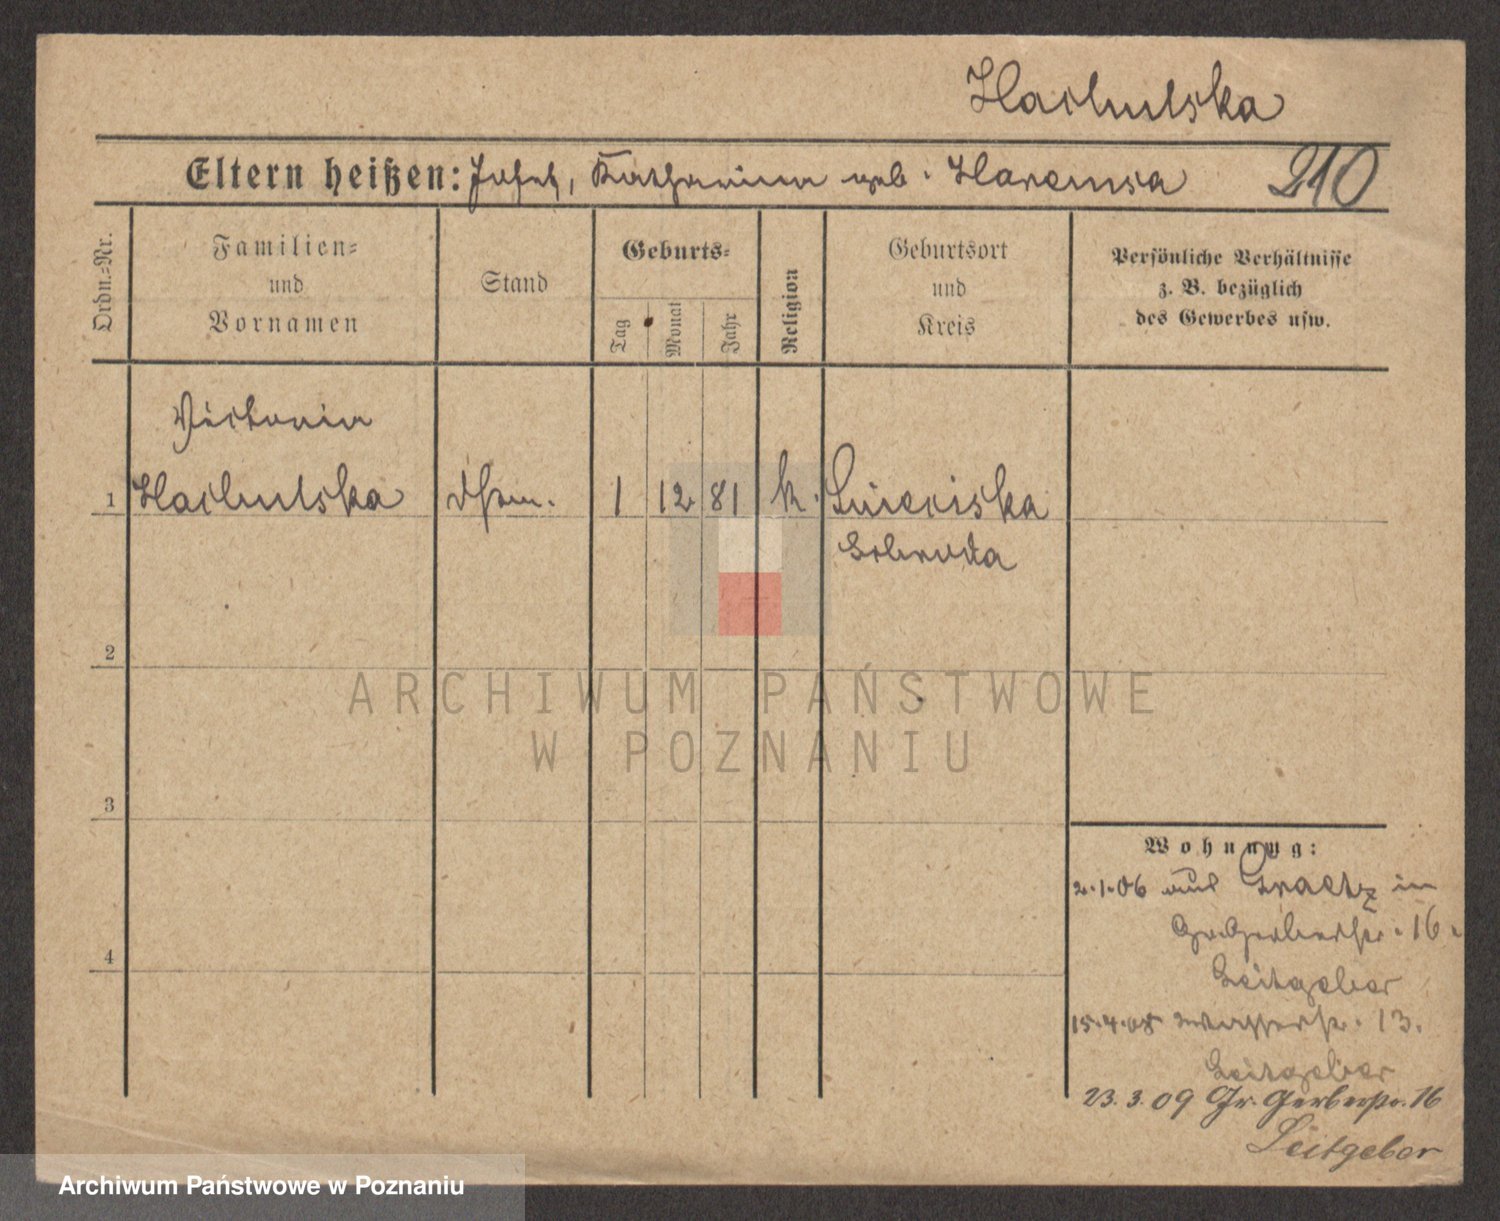 Hachulska
Eltern heißen: Josef, Katharina geb. Haremsa
210
Ordn.=Nr.
Familien=
und
Vornamen
Stand
Geburts=
Tag
Monat
Jahr
Religion
Geburtsort
und
Kreis
Persönliche Verhältnisse
z. B. bezüglich
des Gewerbes usw.
Victoria
1 Hachulska
1 12 81 k.
Schroda
2
3
4
ARCHIWUM PAŃSTWOWE
W POZNANIU
Wohnung:
2.1.06 aus Graetz in
Gr. Gerberstr. 16.
Leitgeber
15.4.08 Wasserstr. 13.
Leitgeber
23.3.09 Gr. Gerberstr. 16
Leitgeber
Archiwum Państwowe w Poznaniu